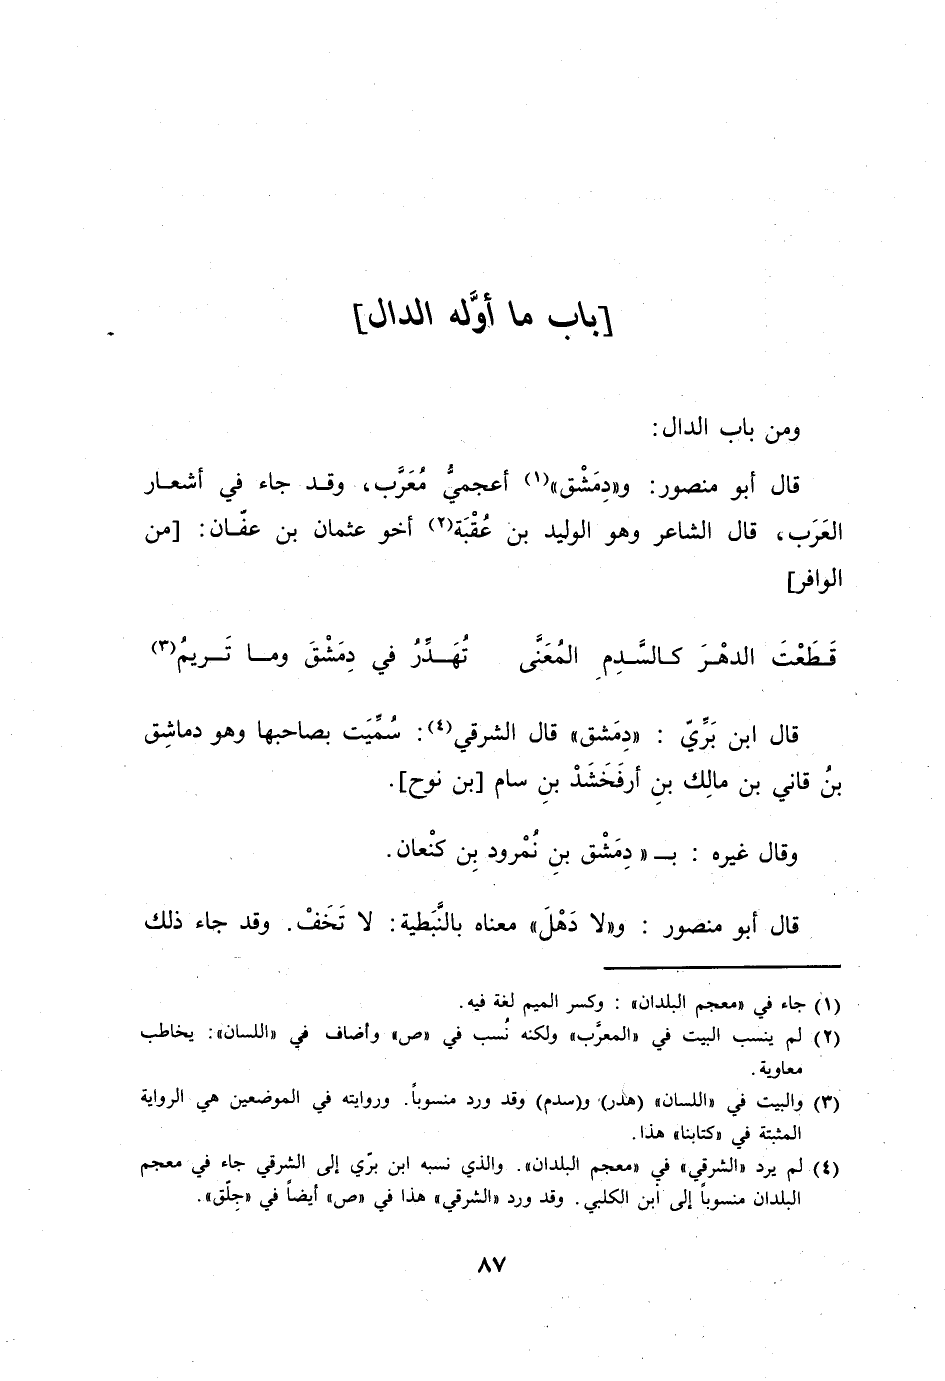 [باب ما أوَّله الدال]
ومن باب الدال:
قال أبو منصور: و«دِمَشْق»(١) أعجميٌّ مُعَرَّب، وقـد جاء في أشعـار
العَرَب، قال الشاعر وهو الوليد بن عُقْبَة(٢) أخو عثمان بن عفّـان: [من
الوافر]
قَـطَعْتَ الدهْـرَ كـالسَّـدِمِ المُعَنَّى تُهَـدِّرُ في دِمَشْقَ ومـا تَـريمُ(٣)
قال ابن بَرِّيّ : «دِمَشق» قال الشرقي(٤): سُمِّيَت بصاحبها وهو دماشِق
بنُ قاني بن مالِك بنِ أرفَخَشَذْ بنِ سام [بن نوح].
وقال غيره : بـ « دِمَشْق بنِ نُمْرود بنِ كنْعان.
قال أبو منصور : و«لا دَهْلَ» معناه بالنَّبَطية: لا تَخَفْ. وقد جاء ذلك
(١) جاء في «معجم البلدان» : وكسر الميم لغة فيه.
(٢) لم ينسب البيت في «المعرَّب» ولكنه نُسب في «ص» وأضاف في «اللسان»: يخاطب
معاوية.
(٣) والبيت في «اللسان» (هذر) و(سدم) وقد ورد منسوباً. وروايته في الموضعين هي الرواية
المثبتة في «كتابنا» هذا.
(٤) لم يرد «الشرقي» في «معجم البلدان». والذي نسبه ابن برّي إلى الشرقي جاء في معجم
البلدان منسوباً إلى ابن الكلبي. وقد ورد «الشرقي» هذا في «ص» أيضاً في «جِلّق».
٨٧